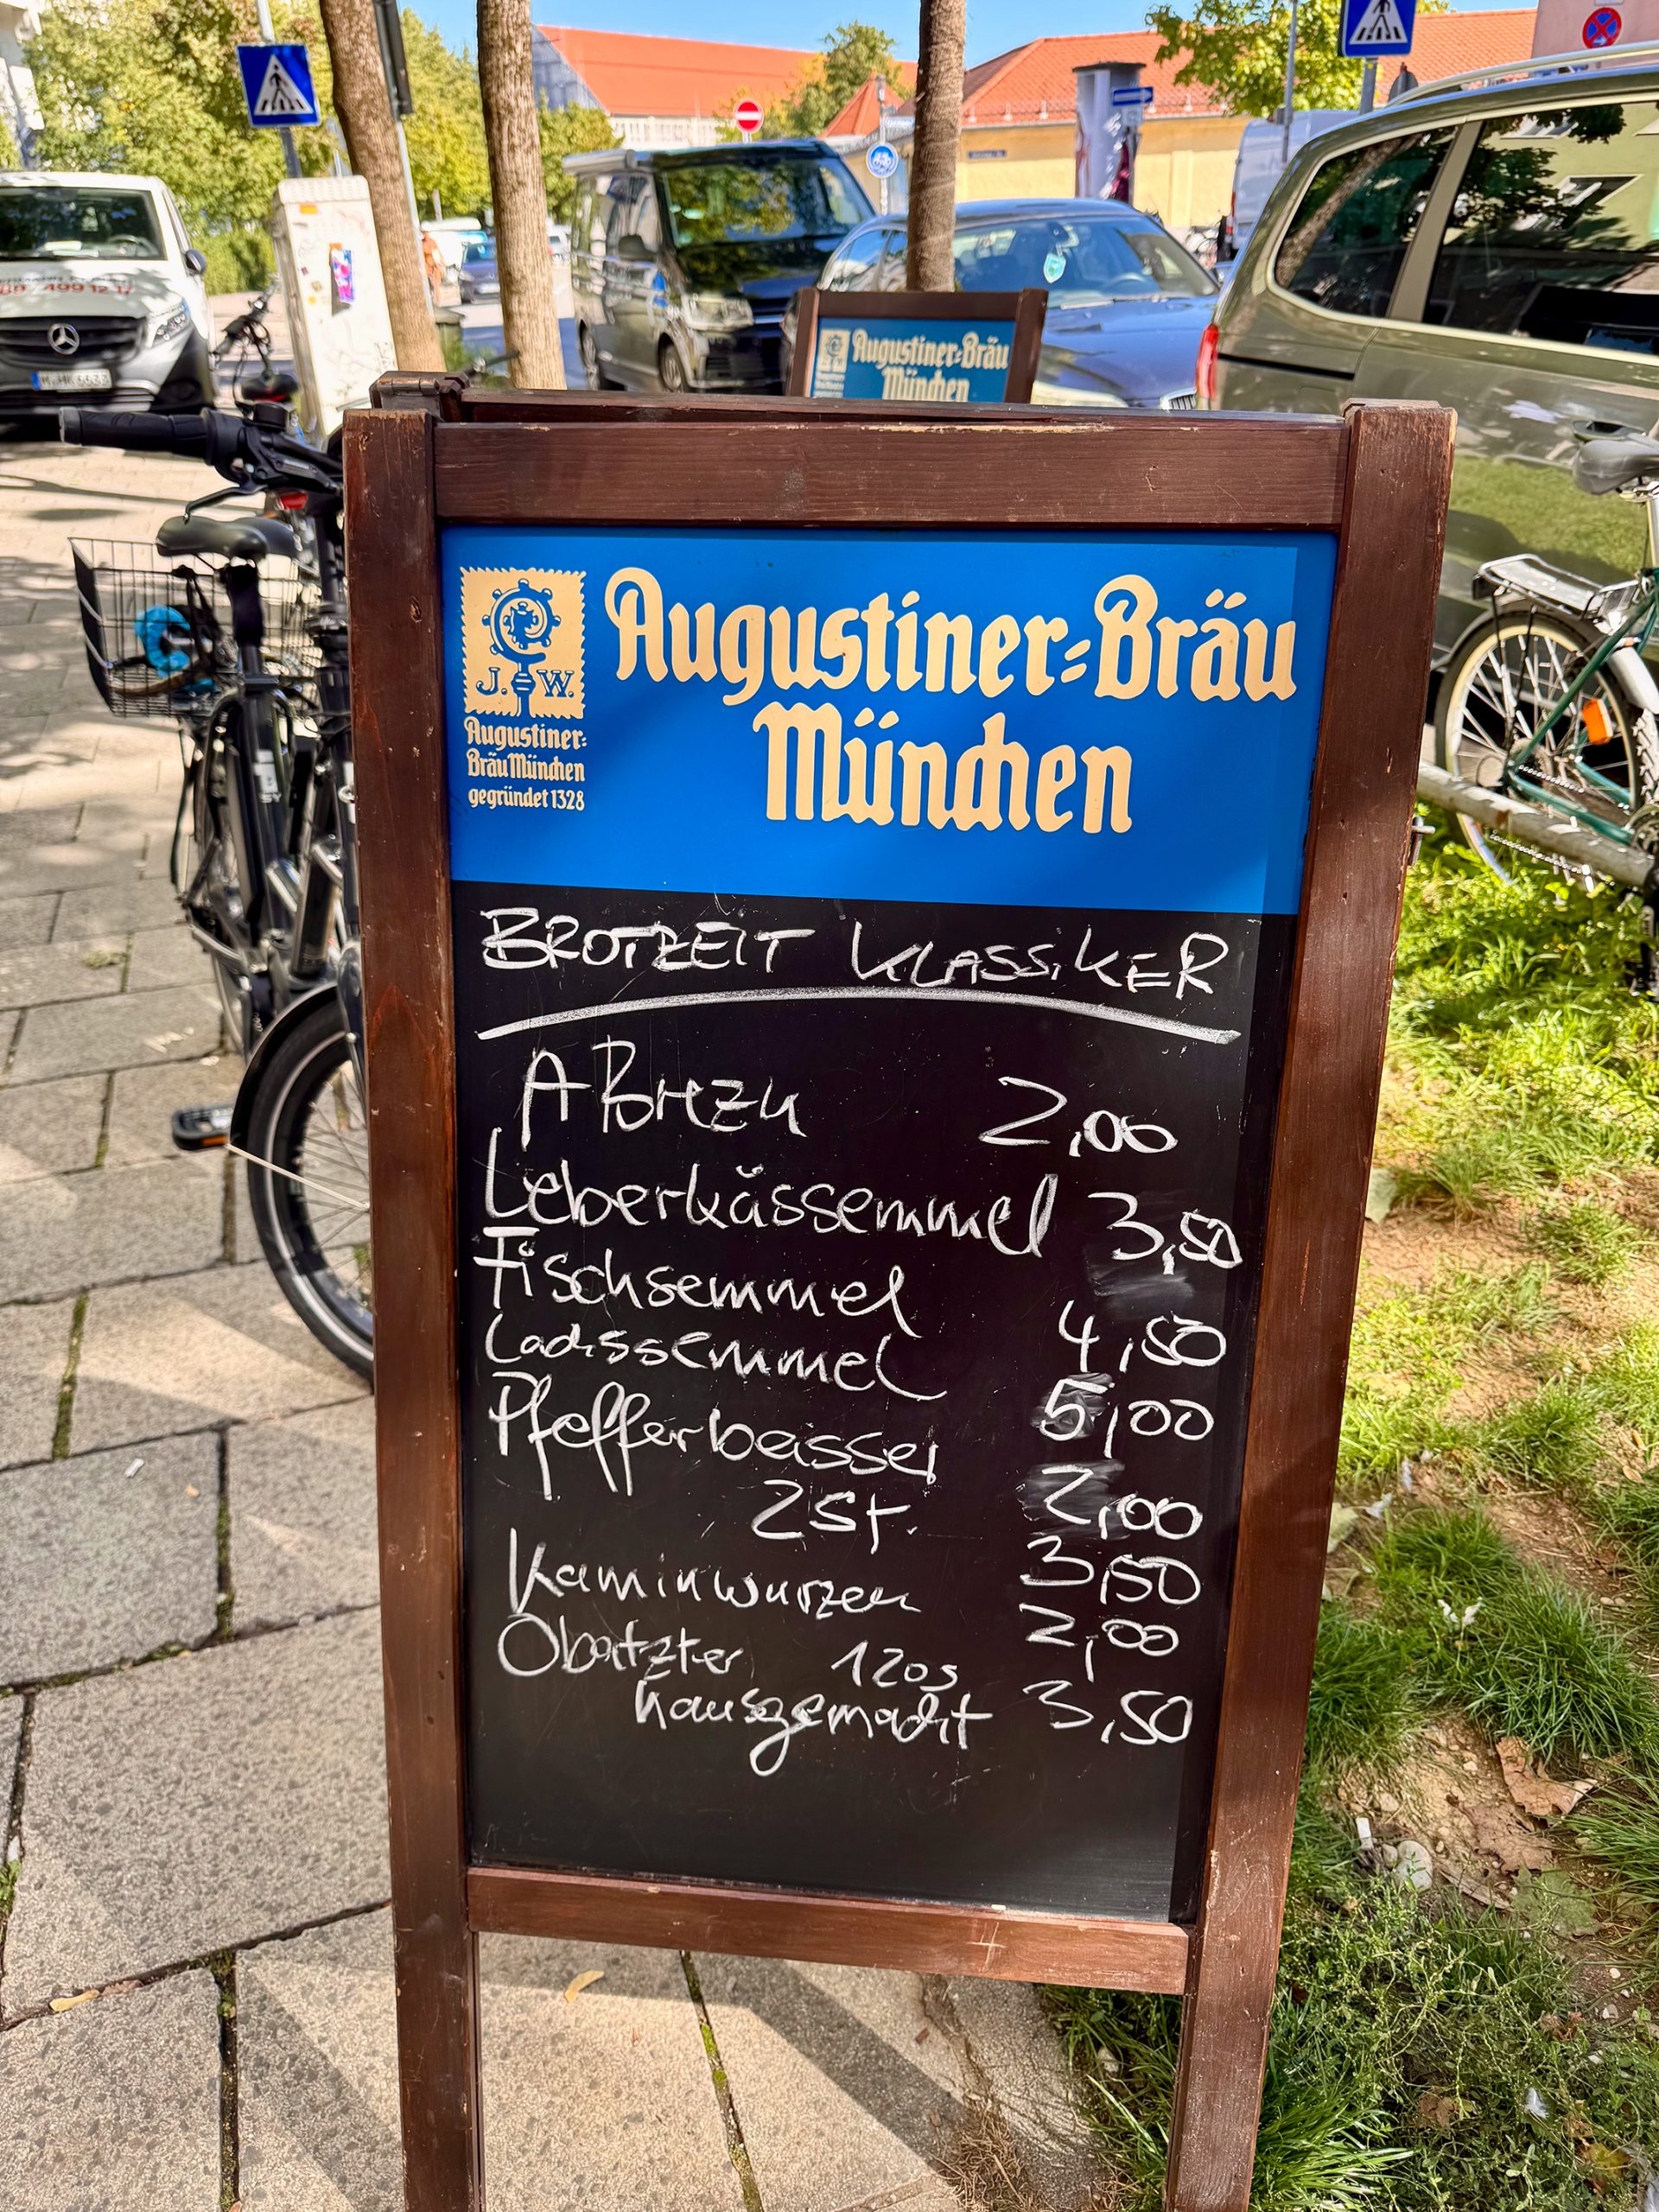 Augustiner-Bräu
München
J. W.
Augustiner-
Bräu München
gegründet 1328
Augustiner-Bräu
München
BROTZEIT KLASSIKER
A Brezn 2,00
Leberkässemmel 3,50
Fischsemmel 4,50
Lachssemmel 5,00
Pfefferbeisser 2,00
2 St. 3,50
Kaminwurzen 2,00
Obatzter 120g
hausgemacht 3,50